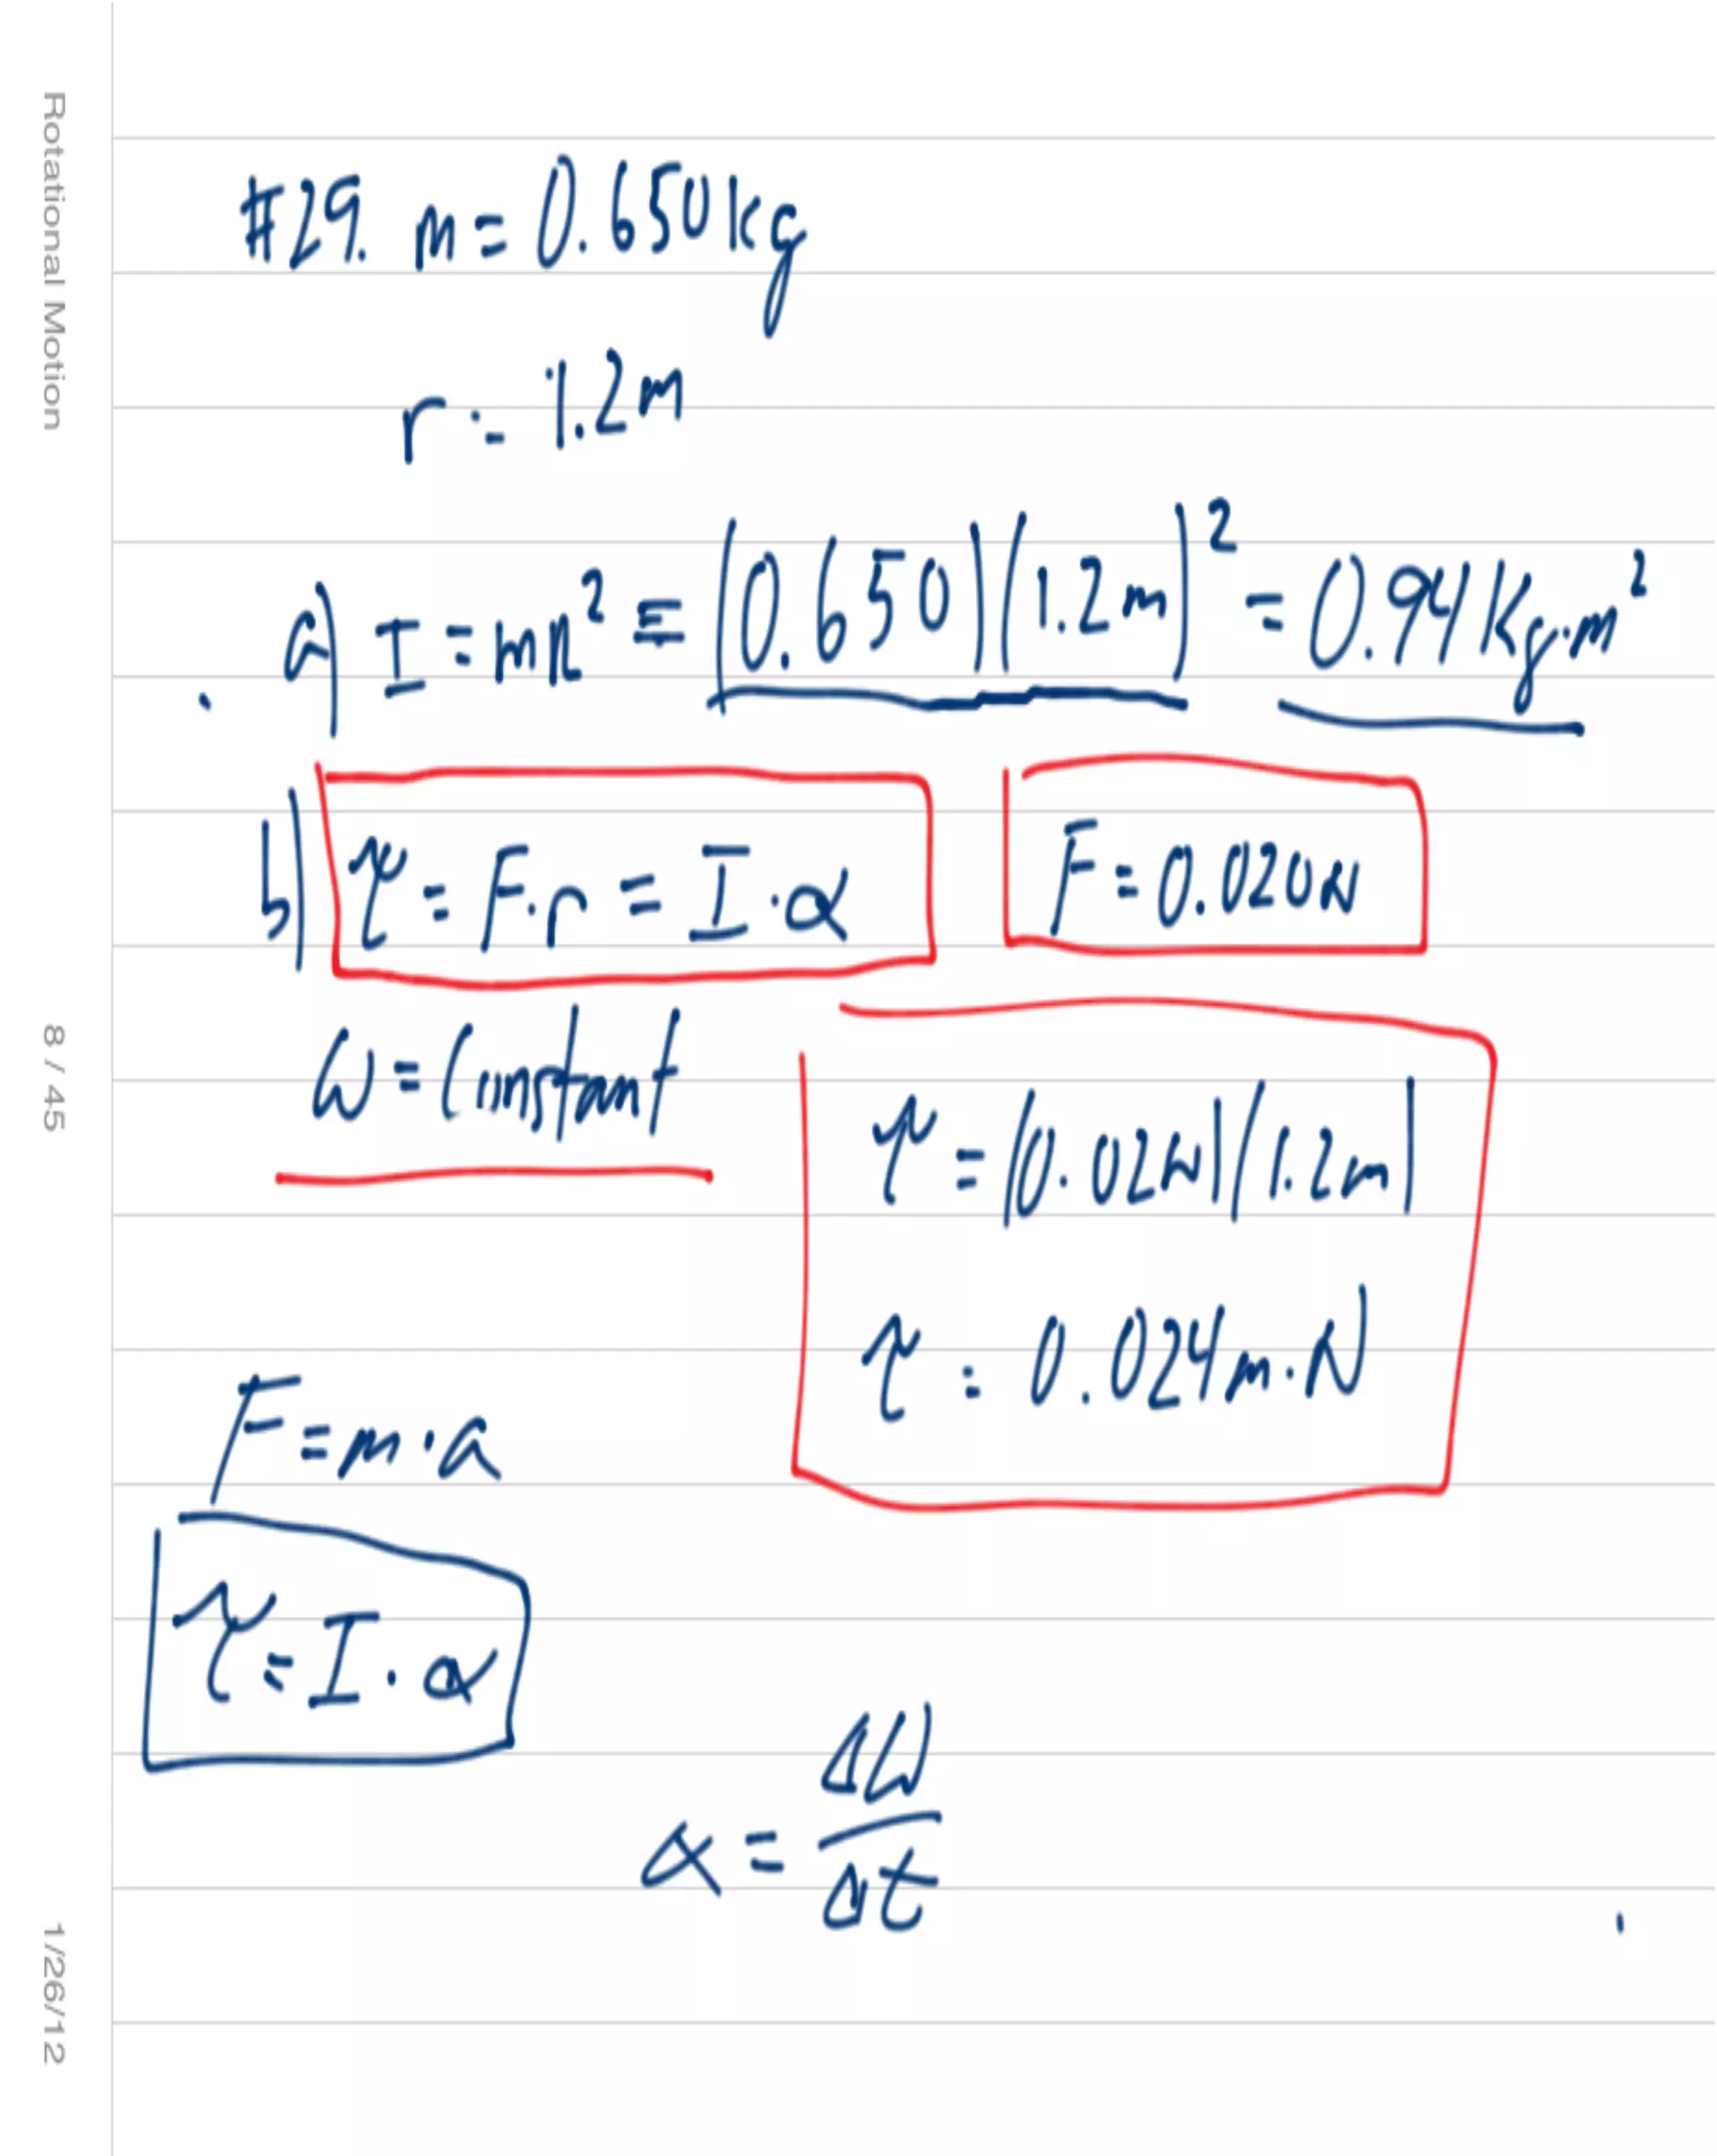 Rotational Motion
8 / 45
1/26/12
#29. m = 0.650 kg
r = 1.2 m
a) I = mr² = (0.650)(1.2 m)² = 0.94 kg·m²
b) τ = F·r = I·α
F = 0.020 N
ω = Constant
τ = (0.02N)(1.2m)
τ = 0.024 m·N
F = m·a
τ = I·α
α = Δω/Δt